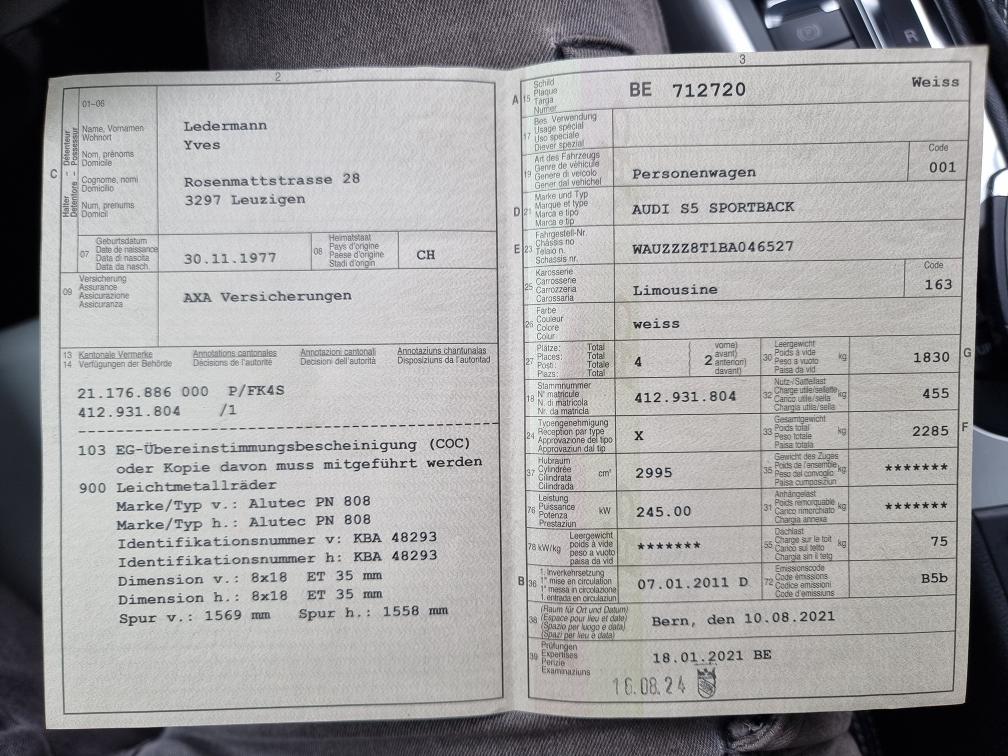 2
C
Halter – Détenteur
Detentore – Possessur
01–06
Name, Vornamen
Wohnort
Nom, prénoms
Domicile
Cognome, nomi
Domicilio
Num, prenums
Domicil
Ledermann
Yves
Rosenmattstrasse 28
3297 Leuzigen
07
Geburtsdatum
Date de naissance
Data di nascita
Data da nasch.
30.11.1977
08
Heimatstaat
Pays d'origine
Paese d'origine
Stadi d'origin
CH
09
Versicherung
Assurance
Assicurazione
Assicuranza
AXA Versicherungen
13 Kantonale Vermerke Annotations cantonales Annotazioni cantonali Annotaziuns chantunalas
14 Verfügungen der Behörde Décisions de l'autorité Decisioni dell'autorità Disposiziuns da l'autoritad
21.176.886 000 P/FK4S
412.931.804 /1
103 EG-Übereinstimmungsbescheinigung (COC)
oder Kopie davon muss mitgeführt werden
900 Leichtmetallräder
Marke/Typ v.: Alutec PN 808
Marke/Typ h.: Alutec PN 808
Identifikationsnummer v: KBA 48293
Identifikationsnummer h: KBA 48293
Dimension v.: 8x18 ET 35 mm
Dimension h.: 8x18 ET 35 mm
Spur v.: 1569 mm Spur h.: 1558 mm
3
A 15
Schild
Plaque
Targa
Numer
BE 712720 Weiss
17
Bes. Verwendung
Usage spécial
Uso speciale
Diever spezial
19
Art des Fahrzeugs
Genre de véhicule
Genere di veicolo
Gener dal vehichel
Personenwagen
Code
001
D 21
Marke und Typ
Marque et type
Marca e tipo
Marca e tip
AUDI S5 SPORTBACK
E 23
Fahrgestell-Nr.
Châssis no
Telaio n.
Schassis nr.
WAUZZZ8T1BA046527
25
Karosserie
Carrosserie
Carrozzeria
Carossaria
Limousine
Code
163
26
Farbe
Couleur
Colore
Colur
weiss
27
Plätze: Total
Places: Total
Posti: Totale
Plazs: Total
4
vorne)
avant)
anteriori)
davant)
2
30
Leergewicht
Poids à vide
Peso a vuoto
Paisa da vid
kg
1830
G
18
Stammnummer
N° matricule
N. di matricola
Nr. da matricla
412.931.804
32
Nutz-/Sattellast
Charge utile/sellette
Carico utile/sella
Chargia utila/sella
kg
455
24
Typengenehmigung
Réception par type
Approvazione del tipo
Approvaziun dal tip
X
33
Gesamtgewicht
Poids total
Peso totale
Paisa totala
kg
2285
F
37
Hubraum
Cylindrée
Cilindrata
Cilindrada
cm³
2995
35
Gewicht des Zuges
Poids de l'ensemble
Peso del convoglio
Paisa cumposiziun
kg
*******
76
Leistung
Puissance
Potenza
Prestaziun
kW
245.00
31
Anhängelast
Poids remorquable
Carico rimorchiato
Chargia annexa
kg
*******
78 kW/kg
Leergewicht
poids à vide
peso a vuoto
paisa da vid
*******
55
Dachlast
Charge sur le toit
Carico sul tetto
Chargia sin il tetg
kg
75
B 36
1. Inverkehrsetzung
1re mise en circulation
1a messa in circolazione
1. entrada en circulaziun
07.01.2011 D
72
Emissionscode
Code émissions
Codice emissioni
Code d'emissiuns
B5b
38
(Raum für Ort und Datum)
(Espace pour lieu et date)
(Spazio per luogo e data)
(Spazi per lieu e data)
Bern, den 10.08.2021
39
Prüfungen
Expertises
Perizie
Examinaziuns
18.01.2021 BE
16.08.24